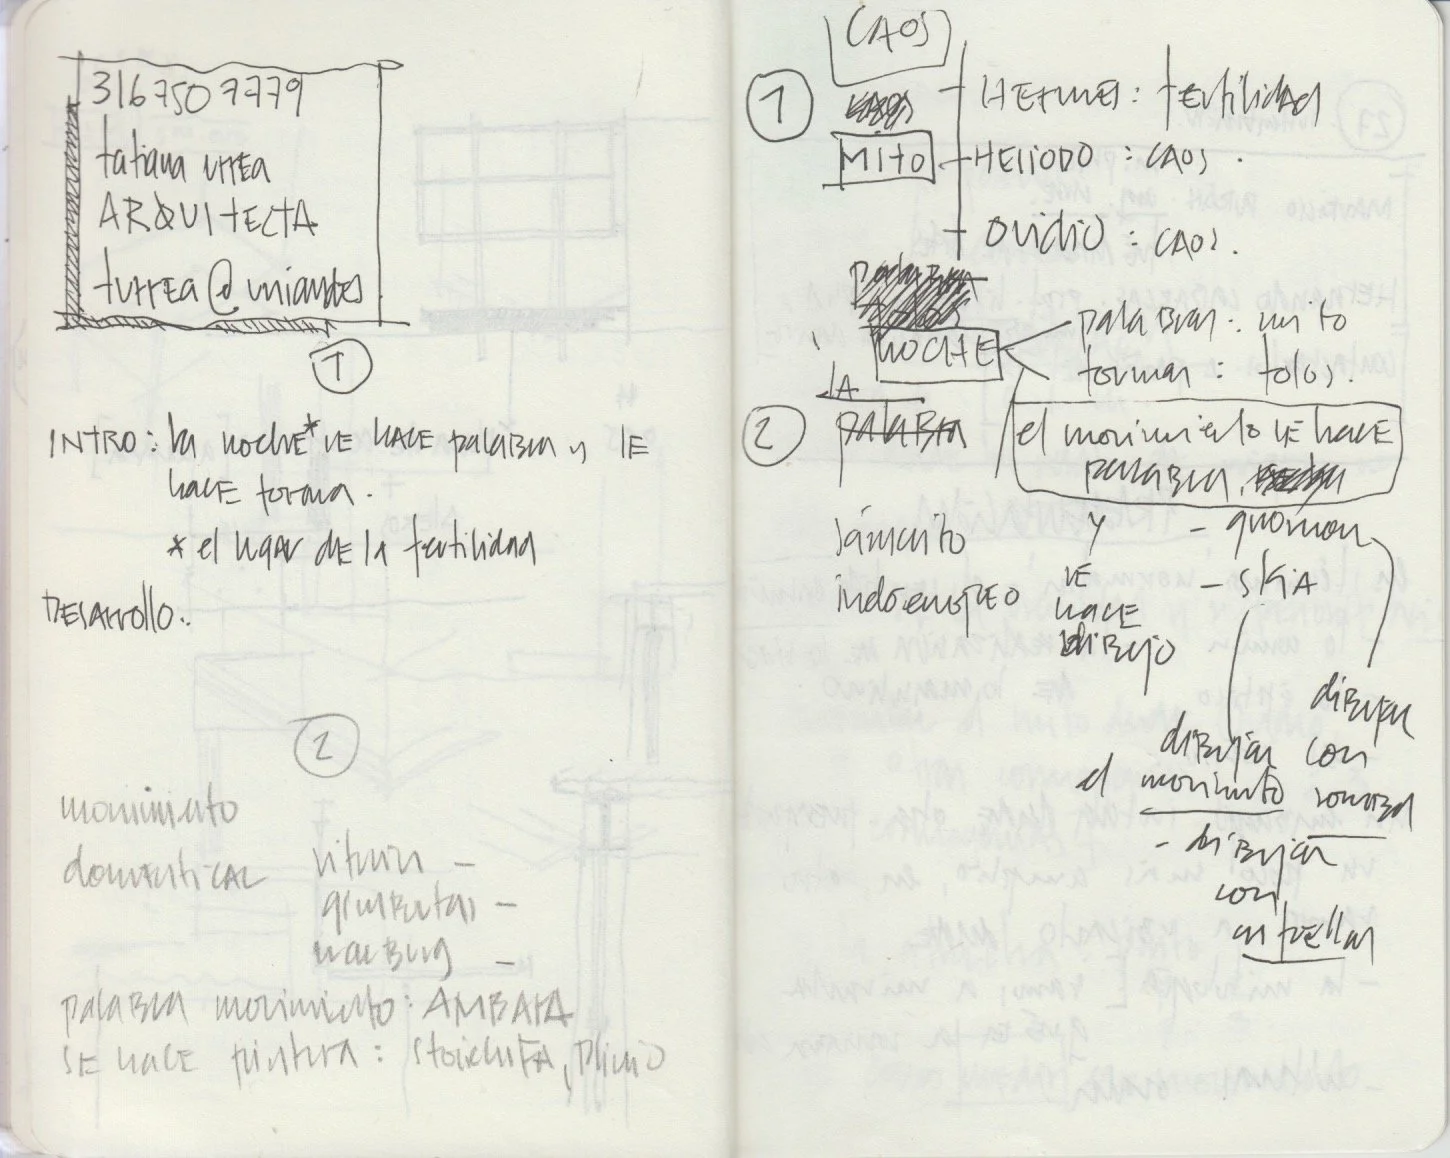 3167507779
tatiana urrea
ARQUITECTA
turrea@uniandes
1
INTRO: la noche* se hace palabra y se
hace forma.
* el lugar de la fertilidad
Desarrollo:
2
movimiento
domesticar
gimbutas –
warburg –
palabra movimiento: AMBATA
se hace pintura: stoichita, Plinio
CAOS
1
MITO
– Hermes: fertilidad
– HESIODO: CAOS.
– Ovidio: CAOS.
NOCHE
palabras: mito
formas: tolos.
2
LA
palabra
el movimiento se hace
palabra,
sánscrito
indoeuropeo
y
se
hace
dibujo
– gnomon
– skia
dibujar
con
sombra
dibujar
el movimiento
– dibujar
con
estrellas